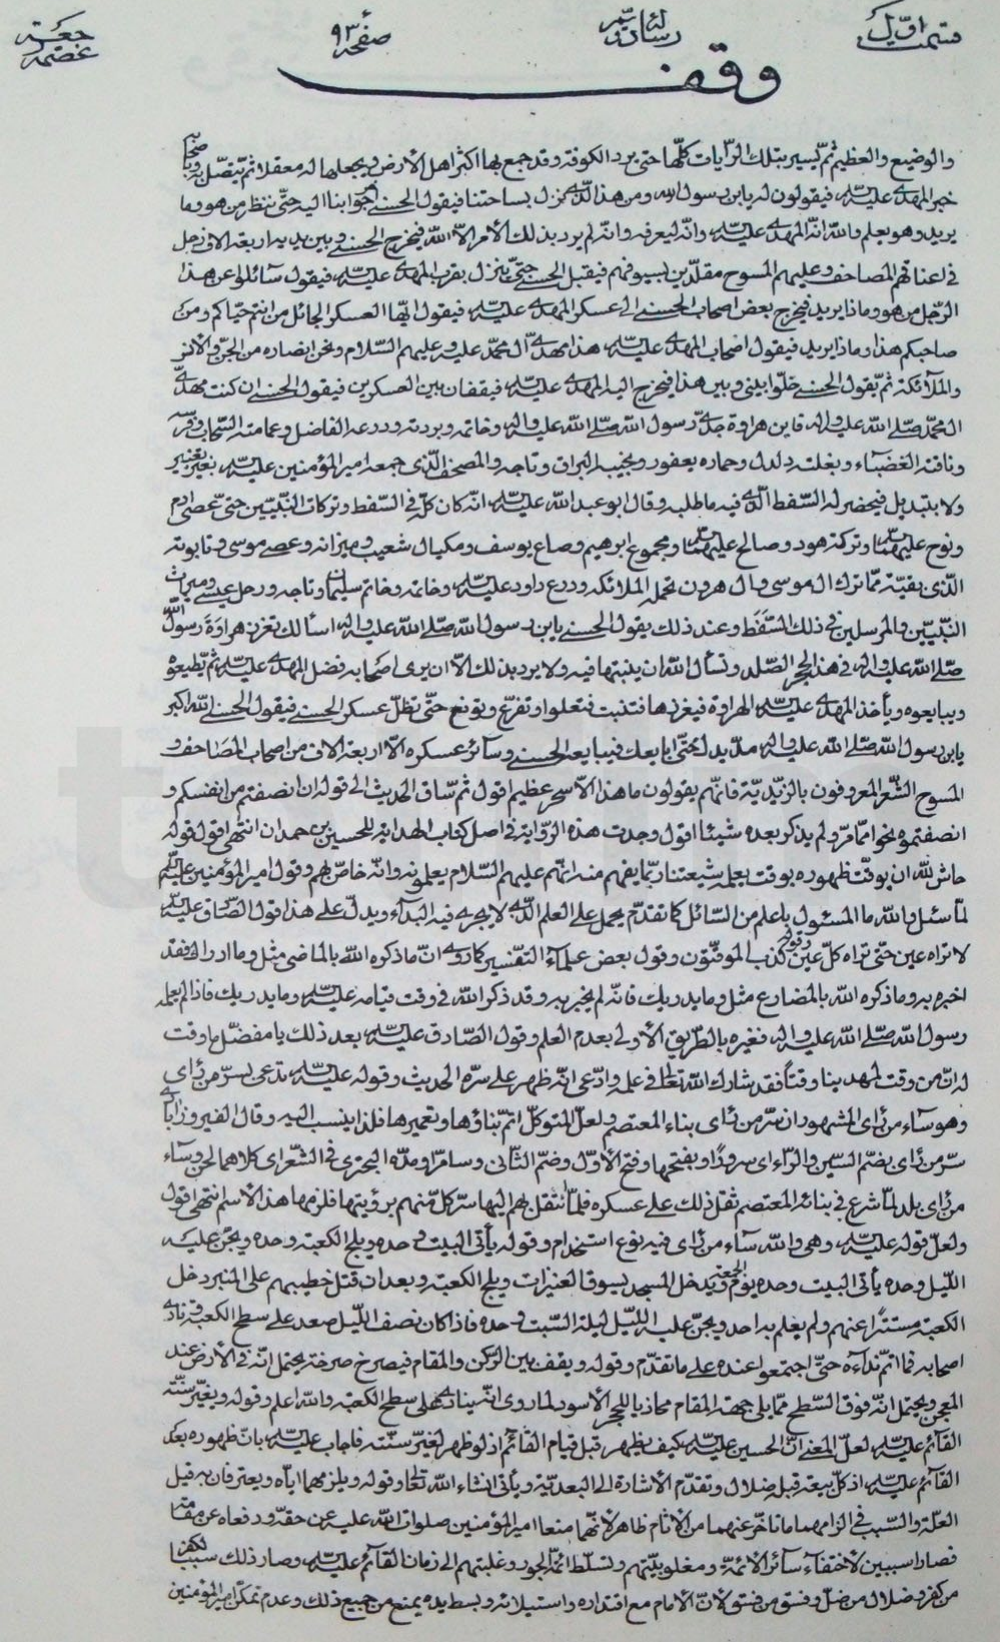 قسمت اوّل رساله در صفحه ٩٣ جعة عصمة
وقف
والوضيع والعظيم ثمّ يسير بتلك الرّايات كلّها حتى يرد الكوفة وقد جمع بها اكثر اهل الأرض ويجعلها له معقلا ثمّ يتّصل به وباصحابه
خبر المهدى عليه السلام فيقولون له يابن رسول الله ومن هذا الّذى نزل بساحتنا فيقول الحسنى اخرجوا بنا اليه حتّى ننظر من هو وما
يريد وهو يعلم والله انّه المهدى عليه السلام وانّه ليعرفه وانّه لم يرد بذلك الأمر الّا الله فيخرج الحسنى وبين يديه اربعة الاف رجل
فى اعناقهم المصاحف وعليهم المسوح مقلّدين بسيوفهم فيقبل الحسنى حتّى ينزل بقرب المهدى عليه السلام فيقول سائلوا عن هذا
الرّجل من هو وماذا يريد فيخرج بعض اصحاب الحسنى الى عسكر المهدى عليه السلام فيقول ايّها العسكر الجائل من انتم حيّاكم ومن
صاحبكم هذا وماذا يريد فيقول اصحاب المهدى عليه السلام هذا مهدى آل محمّد عليه وعليهم السّلام ونحن انصاره من الجنّ والانس
والملآئكة ثمّ يقول الحسنى خلّوا بينى وبين هذا فيخرج اليه المهدى عليه السلام فيقفان بين العسكرين فيقول الحسنى ان كنت مهدىّ
ال محمّد صلّى الله عليه واله فاين هراوة جدّى رسول الله صلّى الله عليه واله وخاتمه وبردته ودرعه الفاضل وعمامته السّحاب وفرسه
وناقته الغضباء وبغلته دلدل وحماره يعفور ونجيبه البراق وتاجه والمصحف الّذى جمعه امير المؤمنين عليه السلام بغير تغيير
ولا تبديل فيحضر له السّفط الّذى فيه ما طلبه وقال ابو عبد الله عليه السلام انّه كان كلّه فى السّفط وتركات النّبيّين حتّى عصى ادم
ونوح عليهما السلام وتركة هود وصالح عليهما السلام ومجموع ابرهيم وصاع يوسف ومكيال شعيب وميزانه وعصى موسى وتابوته
الّذى بقيّة ممّا ترك ال موسى وال هرون تحمله الملائكة ودرع داود عليه السلام وخاتمه وخاتم سليمان وتاجه ورحل عيسى وميراث
النّبيّين والمرسلين فى ذلك السّفط وعند ذلك يقول الحسنى يابن رسول الله صلّى الله عليه واله اسألك تغرز هراوة رسول الله
صلّى الله عليه واله فى هذا الحجر الصّلد وتسأل الله ان ينبتها فيه ولا يريد بذلك الّا ان يرى اصحابه فضل المهدى عليه السلام ثمّ يطيعوه
ويبايعوه ويأخذ المهدى عليه السلام الهراوة فيغرزها فتنبت فتعلوا وتفرّع وتونع حتّى تظلّ عسكر الحسنى فيقول الحسنى الله اكبر
يابن رسول الله صلّى الله عليه واله مدّ يدك حتّى ابايعك فيبايعه الحسنى وسائر عسكره الّا اربعة الاف من اصحاب المصاحف و
المسوح الشّعر المعروفون بالزّيديّة فانّهم يقولون ما هذا الّا سحر عظيم اقول ثم سّاق الحديث الى قوله ان انصفتم من انفسكم و
انصفتموه نحوا ممّا مرّ ولم يذكر بعده شيئا اقول وجدت هذه الرّواية فى اصل كتاب الهداية للحسين بن حمدان انتهى اقول قوله
حاش لله ان يوقّت ظهوره بوقت يعلمه شيعتنا ربّما يفهم منه انّهم عليهم السلام يعلمونه وانّه خاصّ لهم وقول امير المؤمنين عليه السلام
لمّا سئل والله ما المسئول باعلم من السّائل كما تقدّم يحمل على العلم الّذى لا يجرى فيه البداء ويدلّ على هذا قول الصّادق عليه السلام
لا تراه عين حتّى تراه كلّ عين وقوله كذب الموقّتون وقول بعض علمآء التفسير كما روى انّ ما ذكره الله بالماضى مثل وما ادراك فقد
اخبره به وما ذكره الله بالمضارع مثل وما يدريك فانّه لم يخبر به وقد ذكر الله فى وقت قيامه عليه السلام وما يدريك فاذا لم يعلمه
رسول الله صلّى الله عليه واله فغيره بالطّريق الأولى بعدم العلم وقول الصّادق عليه السلام بعد ذلك يا مفضّل ما وقت
له انّ من وقت لمهدينا وقتاً فقد شارك الله تعالى فى علمه وادّعى انّه ظهر على سرّه الحديث وقوله عليه السلام تدعى بسرّ من رأى
وهو سآء من رأى المشهور ان سرّ من رأى بناء المعتصم ولعلّ المتوكّل اتمّ بناؤها وتعميرها فلذا ينسب اليه وقال الفيروزابادى
سرّ من رأى بضمّ السّين والرّاء اى سرور او بفتحها وفتح الأوّل وضمّ الثّانى وسامرّا ومدّه البحترى فى الشّعر اى كلاهما لحن وسآء
من رأى بلد لمّا شرع فى بنائه المعتصم ثقل ذلك على عسكره فلمّا انتقل بهم اليها سرّ كلّ منهم برؤيتها فلزمها هذا الاسم انتهى اقول
ولعلّ قوله عليه السلام وهى والله سآء من رأى فيه نوع استخدام وقوله يأتى البيت وحده ويلج الكعبة وحده ويجنّ عليه
اللّيل وحده يأتى البيت وحده يوم الجمعة ويدخل المسجد يسوق العنيزات ويلج الكعبة وبعد ان قتل خطيبهم على المنبر دخل
الكعبة مستتراً عنهم ولم يعلم به احد ويجنّ عليه اللّيل ليلة السّبت وحده فاذا كان نصف اللّيل صعد على سطح الكعبة ونادى
اصحابه فما اتمّ ندآءه حتّى اجتمعوا عنده على ما تقدّم وقوله ويقف بين الرّكن والمقام فيصرخ صرخة يحتمل انّه فى الأرض عند
المعجن ويحتمل انّه فوق السّطح ممّا يلى جهة المقام محاذيا للحجر الأسود لما روى انّه ينادى على سطح الكعبة والله اعلم وقوله ويغيّر سنّة
القآئم عليه السلام لعلّ المعنى انّ الحسين عليه السلام كيف يظهر قبل قيام القآئم اذ لو ظهر لغيّر سنّته فاجاب عليه السلام بانّ ظهوره بعد
القآئم عليه السلام اذ كلّ بيعة قبله ضلال وتقدّم الأشارة الى البعديّة ويأتى انشاء الله تعالى وقوله ويلزمهما ايّاه ويعترفان به قيل
العلّة والسّبب فى الزامهما ما تأخّر عنهما من الأثام ظاهر لأنّهما منعا امير المؤمنين صلوات الله عليه عن حقّه ودفعاه عن مقامه
فصارا سببين لأختفآء سآئر الأئمّة ومغلوبيّتهم وتسلّط ائمّة الجور وغلبتهم الى زمان القآئم عليه السلام وصار ذلك سببا لكفر
من كفر وضلال من ضلّ وفسق من فسق لأنّ الأمام مع اقتداره واستيلائه وبسط يده يمنع من جميع ذلك وعدم تمكّن امير المؤمنين